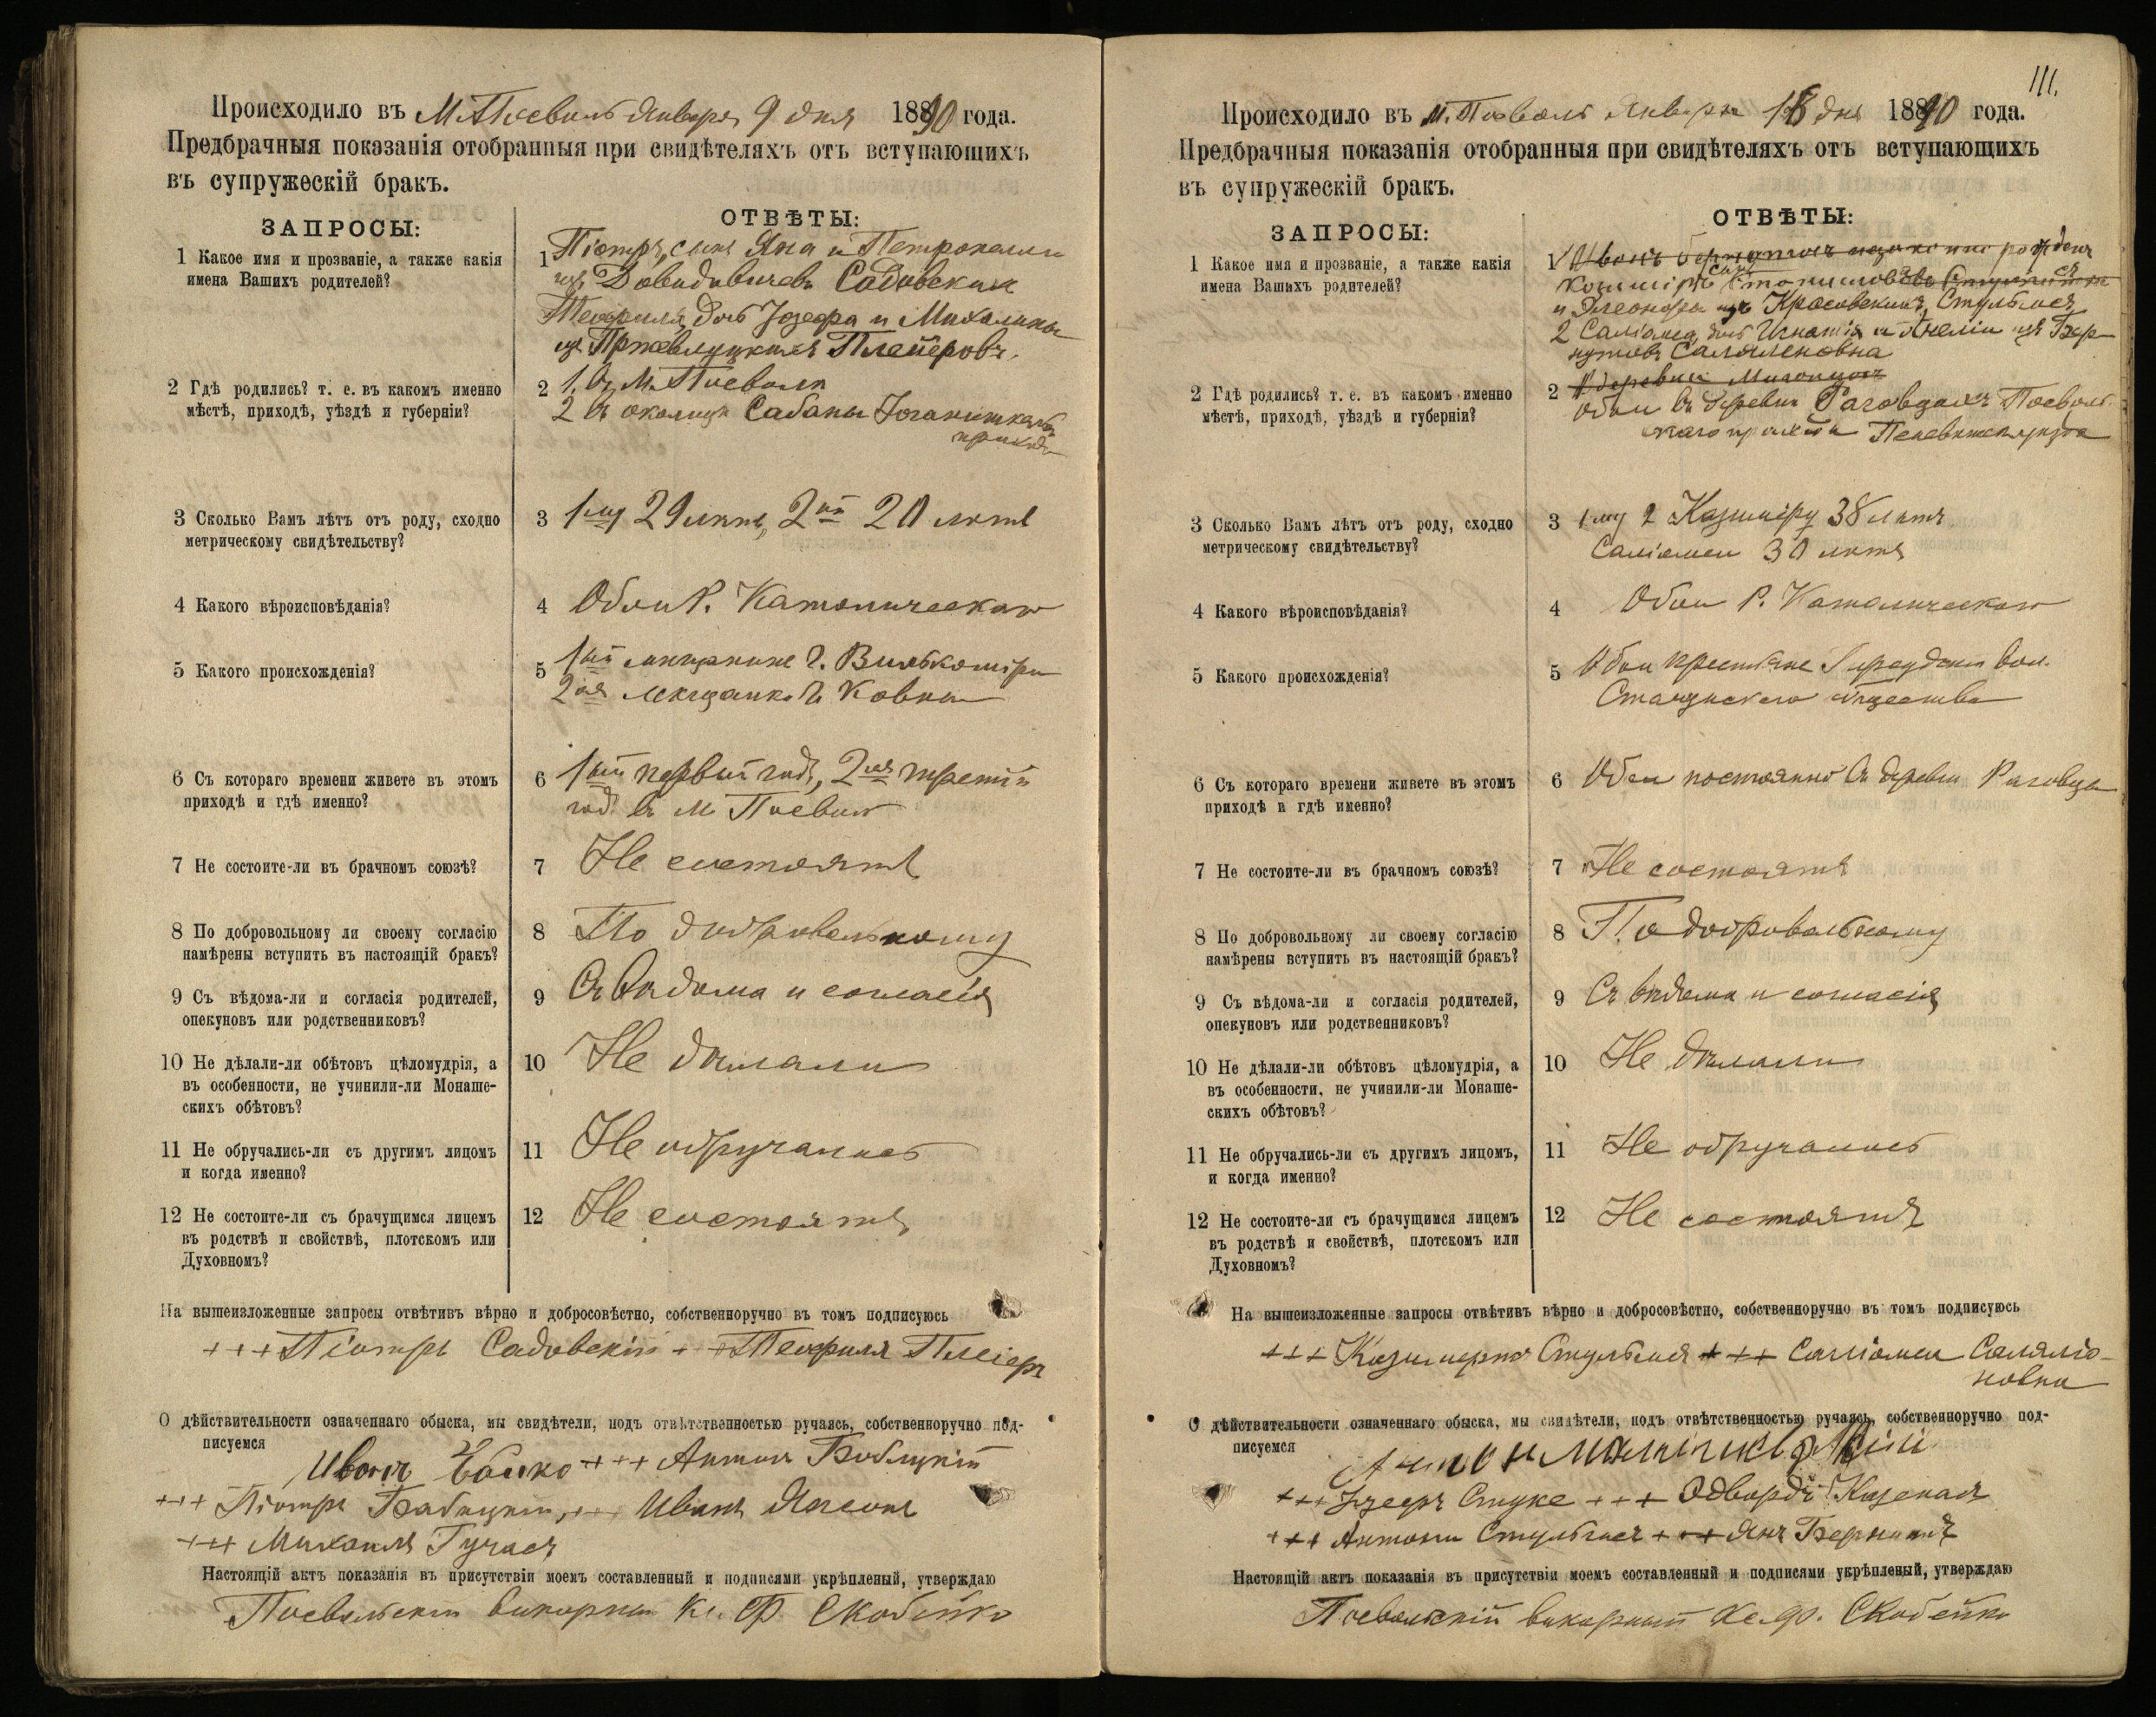 Происходило въ М. Посволь Января 9 дня 1890 года.
Предбрачныя показанія отобранныя при свидѣтеляхъ отъ вступающихъ
въ супружескій бракъ.
ЗАПРОСЫ:
ОТВѢТЫ:
1 Какое имя и прозваніе, а также какія
имена Вашихъ родителей?
1 Піотръ, сынъ Яна и Петронели
изъ Довидовичевъ Садовскихъ
Теофиля, дочь Іозефа и Михалины
изъ Пржевлуцкихъ Плейеровъ.
2 Гдѣ родились? т. е. въ какомъ именно
мѣстѣ, приходѣ, уѣздѣ и губерніи?
2 1. въ М. Посволи
2 въ околицѣ Сабаны
прихода
3 Сколько Вамъ лѣтъ отъ роду, сходно
метрическому свидѣтельству?
3 1му 29 лѣтъ, 2й 20 лѣтъ
4 Какого вѣроисповѣданія?
4 Обои Р. Католическаго
5 Какого происхожденія?
5 1ый мѣщанинъ г. Вилькоміра
2ая мѣщанка г. Ковна
6 Съ котораго времени живете въ этомъ
приходѣ и гдѣ именно?
6 1ый первый годъ, 2ая третій
годъ въ м. Посволѣ
7 Не состоите-ли въ брачномъ союзѣ?
7 Не состоятъ
8 По добровольному ли своему согласію
намѣрены вступить въ настоящій бракъ?
8 По добровольному
9 Съ вѣдома-ли и согласія родителей,
опекуновъ или родственниковъ?
9 Съ вѣдома и согласія
10 Не дѣлали-ли обѣтовъ цѣломудрія, а
въ особенности, не учинили-ли Монаше-
скихъ обѣтовъ?
10 Не дѣлали
11 Не обручались-ли съ другимъ лицомъ
и когда именно?
11 Не обручались
12 Не состоите-ли съ брачущимся лицемъ
въ родствѣ и свойствѣ, плотскомъ или
Духовномъ?
12 Не состоятъ
На вышеизложенные запросы отвѣтивъ вѣрно и добросовѣстно, собственноручно въ томъ подписуюсь
+++ Піотръ Садовскій +++ Теофиля Плеіеръ
О дѣйствительности означеннаго обыска, мы свидѣтели, подъ отвѣтственностью ручаясь, собственноручно под-
писуемся
Иванъ +++ Антонъ Боблуцкій
+++ Піотръ +++ Иванъ
+++ Михаилъ Гучасъ
Настоящій актъ показанія въ присутствіи моемъ составленный и подписями укрѣпленый, утверждаю
Посвольскій викарный Кс. Ф. Скобейко
111.
Происходило въ м. Посволь Января 18 дня 1890 года.
Предбрачныя показанія отобранныя при свидѣтеляхъ отъ вступающихъ
въ супружескій бракъ.
ЗАПРОСЫ:
ОТВѢТЫ:
1 Какое имя и прозваніе, а также какія
имена Вашихъ родителей?
1 1 Иванъ рожденъ
Казиміръ сынъ
и Элеоноры изъ Красовскихъ, Стульгисъ
2 Саліомея, дочь Игнатія и Анеліи изъ Бер
нутовъ
2 Гдѣ родились? т. е. въ какомъ именно
мѣстѣ, приходѣ, уѣздѣ и губерніи?
2 въ деревни
Обои въ деревни Раговцахъ Посволь-
скаго прихода
3 Сколько Вамъ лѣтъ отъ роду, сходно
метрическому свидѣтельству?
3 1му Казиміру 38 лѣтъ
Саліомеи 30 лѣтъ
4 Какого вѣроисповѣданія?
4 Обои Р. Католическаго
5 Какого происхожденія?
5 Обои крестьяне вол.
общества
6 Съ котораго времени живете въ этомъ
приходѣ и гдѣ именно?
6 Обои постоянно въ деревни Раговцы
7 Не состоите-ли въ брачномъ союзѣ?
7 Не состоятъ
8 По добровольному ли своему согласію
намѣрены вступить въ настоящій бракъ?
8 По добровольному
9 Съ вѣдома-ли и согласія родителей,
опекуновъ или родственниковъ?
9 Съ вѣдома и согласія
10 Не дѣлали-ли обѣтовъ цѣломудрія, а
въ особенности, не учинили-ли Монаше-
скихъ обѣтовъ?
10 Не дѣлали
11 Не обручались-ли съ другимъ лицомъ,
и когда именно?
11 Не обручались
12 Не состоите-ли съ брачущимся лицемъ
въ родствѣ и свойствѣ, плотскомъ или
Духовномъ?
12 Не состоятъ
На вышеизложенные запросы отвѣтивъ вѣрно и добросовѣстно, собственноручно въ томъ подписуюсь
+++ Стульгисъ +++ Саліомеи Салямо-
новна
О дѣйствительности означеннаго обыска, мы свидѣтели, подъ отвѣтственностью ручаясь, собственноручно под-
писуемся
+++ Іозефъ Стуке +++ Эдвардъ
+++ Антони Стульгисъ +++ Янъ
Настоящій актъ показанія въ присутствіи моемъ составленный и подписями укрѣпленый, утверждаю
Посвольскій викарный Кс. Ф. Скобейко